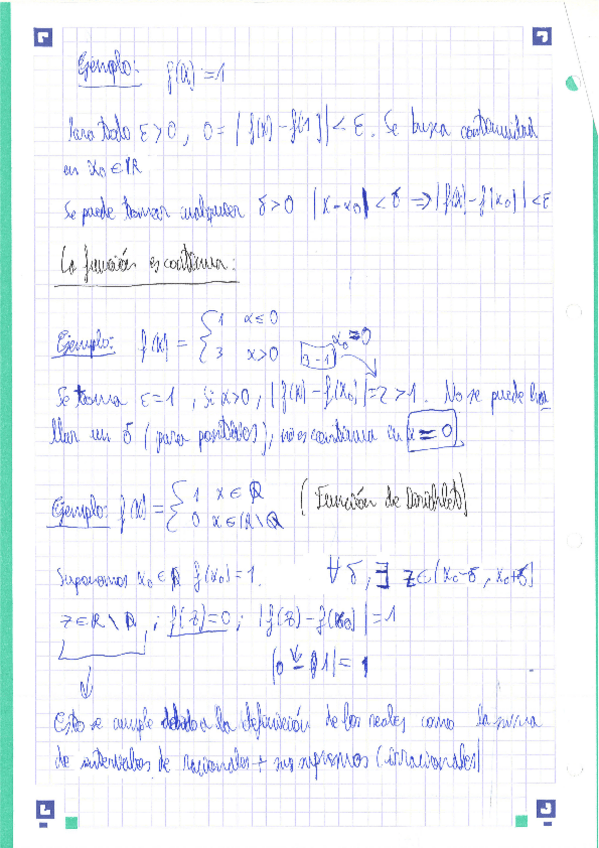 Ejemplo: f(x) = 1
Para todo ε > 0, 0 = |f(x) - f(1)| < ε. Se busca continuidad
en x₀ ∈ ℝ
Se puede tomar cualquier δ > 0 |x - x₀| < δ ⇒ |f(x) - f(x₀)| < ε
La función es continua:
Ejemplo: f(x) = { 1 x ≤ 0
3 x > 0
3 - 1
x₀ = 0
Se toma ε = 1, si x > 0, |f(x) - f(x₀)| = 2 > 1. No se puede ha
llar un δ (para positivos), no es continua en x = 0.
Ejemplo: f(x) = { 1 x ∈ ℚ (Función de Dirichlet)
0 x ∈ ℝ \ ℚ
Suponemos x₀ ∈ ℚ f(x₀) = 1. ∀ δ, ∃ z ∈ (x₀ - δ, x₀ + δ)
z ∈ ℝ \ ℚ, ; f(z) = 0; |f(z) - f(x₀)| = 1
|0 - 1| = 1
Esto se cumple debido a la definición de los reales como la
de intervalos de racionales + sus supremos (irracionales)